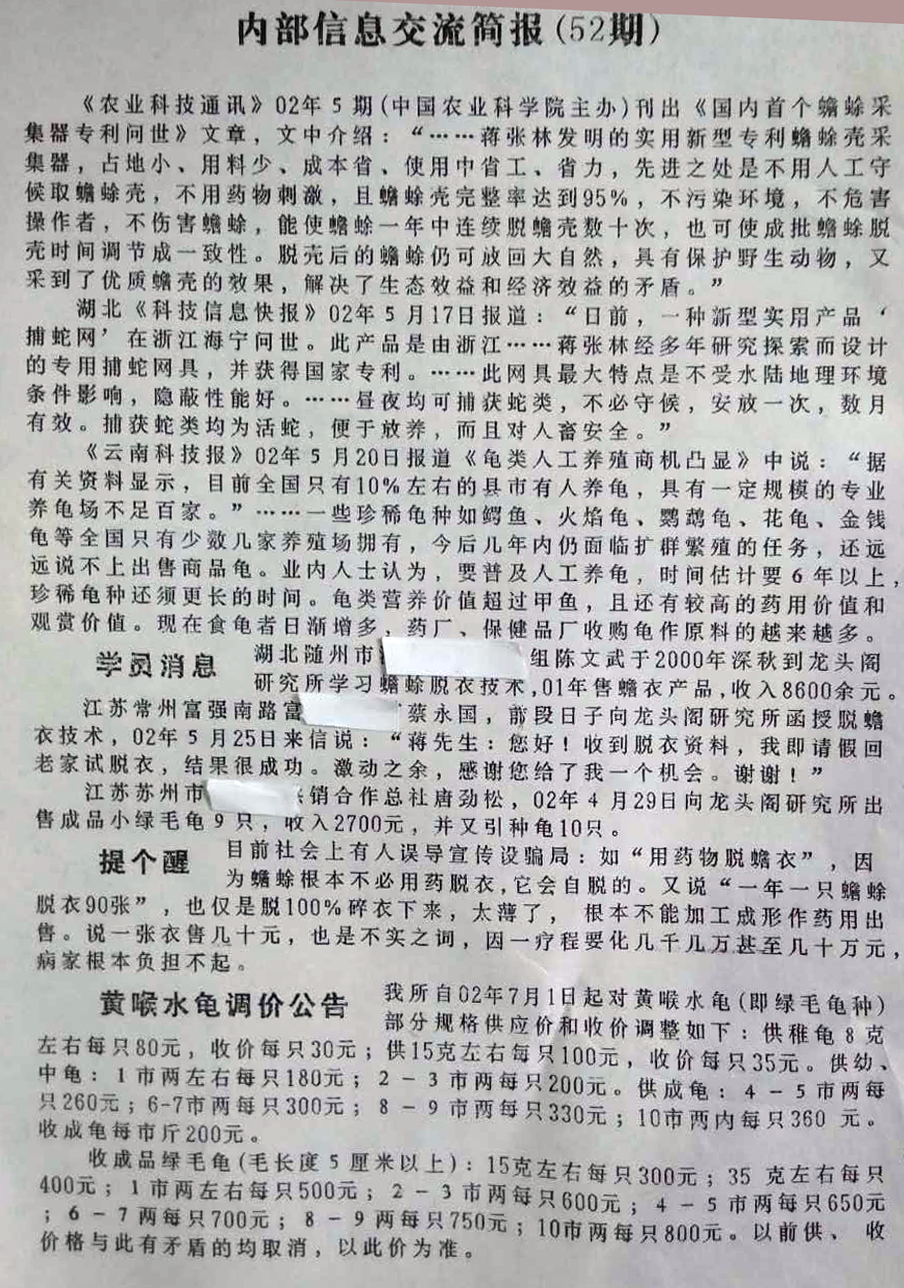 内部信息交流简报(52期)
《农业科技通讯》02年5期(中国农业科学院主办)刊出《国内首个蟾蜍采
集器专利问世》文章，文中介绍：“……蒋张林发明的实用新型专利蟾蜍壳采
集器，占地小、用料少、成本省、使用中省工、省力，先进之处是不用人工守
候取蟾蜍壳，不用药物刺激，且蟾蜍壳完整率达到95%，不污染环境，不危害
操作者，不伤害蟾蜍，能使蟾蜍一年中连续脱蟾壳数十次，也可使成批蟾蜍脱
壳时间调节成一致性。脱壳后的蟾蜍仍可放回大自然，具有保护野生动物，又
采到了优质蟾壳的效果，解决了生态效益和经济效益的矛盾。”
湖北《科技信息快报》02年5月17日报道：“日前，一种新型实用产品‘
捕蛇网’在浙江海宁问世。此产品是由浙江……蒋张林经多年研究探索而设计
的专用捕蛇网具，并获得国家专利。……此网具最大特点是不受水陆地理环境
条件影响，隐蔽性能好。……昼夜均可捕获蛇类，不必守候，安放一次，数月
有效。捕获蛇类均为活蛇，便于放养，而且对人畜安全。”
《云南科技报》02年5月20日报道《龟类人工养殖商机凸显》中说：“据
有关资料显示，目前全国只有10%左右的县市有人养龟，具有一定规模的专业
养龟场不足百家。”……一些珍稀龟种如鳄鱼、火焰龟、鹦鹉龟、花龟、金钱
龟等全国只有少数几家养殖场拥有，今后几年内仍面临扩群繁殖的任务，还远
远说不上出售商品龟。业内人士认为，要普及人工养龟，时间估计要6年以上，
珍稀龟种还须更长的时间。龟类营养价值超过甲鱼，且还有较高的药用价值和
观赏价值。现在食龟者日渐增多，药厂、保健品厂收购龟作原料的越来越多。
学员消息 湖北随州市 组陈文武于2000年深秋到龙头阁
研究所学习蟾蜍脱衣技术,01年售蟾衣产品,收入8600余元。
江苏常州富强南路富 蔡永国，前段日子向龙头阁研究所函授脱蟾
衣技术，02年5月25日来信说：“蒋先生：您好！收到脱衣资料，我即请假回
老家试脱衣，结果很成功。激动之余，感谢您给了我一个机会。谢谢！”
江苏苏州市 销合作总社唐劲松，02年4月29日向龙头阁研究所出
售成品小绿毛龟9只，收入2700元，并又引种龟10只。
提个醒 目前社会上有人误导宣传设骗局：如“用药物脱蟾衣”，因
为蟾蜍根本不必用药脱衣,它会自脱的。又说“一年一只蟾蜍
脱衣90张”，也仅是脱100%碎衣下来，太薄了， 根本不能加工成形作药用出
售。说一张衣售几十元，也是不实之词，因一疗程要化几千几万甚至几十万元，
病家根本负担不起。
黄喉水龟调价公告 我所自02年7月1日起对黄喉水龟(即绿毛龟种)
部分规格供应价和收价调整如下：供稚龟8克
左右每只80元，收价每只30元；供15克左右每只100元，收价每只35元。供幼、
中龟：1市两左右每只180元；2－3市两每只200元。供成龟：4－5市两每
只260元；6-7市两每只300元；8－9市两每只330元；10市两内每只360 元。
收成龟每市斤200元。
收成品绿毛龟(毛长度5厘米以上)：15克左右每只300元；35 克左右每只
400元；1市两左右每只500元；2－3市两每只600元；4－5市两每只650元
；6－7两每只700元；8－9两每只750元；10市两每只800元。以前供、 收
价格与此有矛盾的均取消，以此价为准。